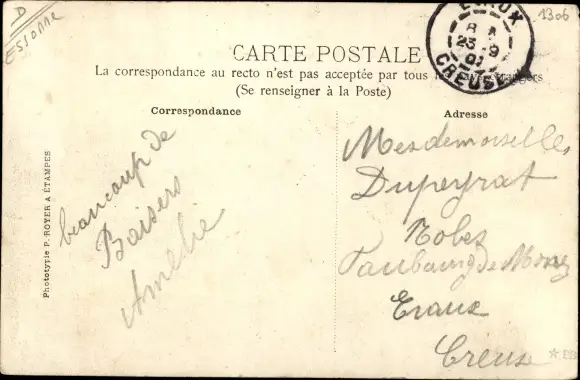 D
ESSONNE
1306
EVAUX
8
23 9
CREUSE
CARTE POSTALE
La correspondance au recto n'est pas acceptée par tous étrangers
(Se renseigner à la Poste)
Correspondance
beaucoup de
Baisers
Amélie
Phototypie P. ROYER A ÉTAMPES
Adresse
Mesdemoiselles
Dupeyrat
Robes
Faubourg de
Evaux
Creuse